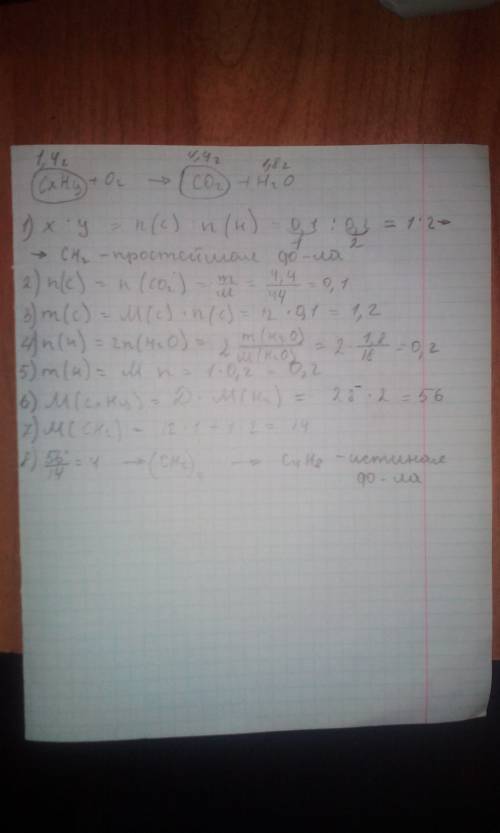 1,4г 4,4г 1,8г
CxHy + O2 → CO2 + H2O
1) x : y = n(c) : n(н) = 0,1 : 0,2 = 1:2 →
1 2
→ CH2 - простейшая фо-ла
2) n(c) = n(CO2) = m/M = 4,4/44 = 0,1
3) m(c) = M(c) · n(c) = 12 · 0,1 = 1,2
4) n(н) = 2n(H2O) = 2 m(H2O)/M(H2O) = 2 · 1,8/18 = 0,2
5) m(н) = M · n = 1 · 0,2 = 0,2
6) M(CxHy) = D · M(H2) = 28 · 2 = 56
7) M(CH2) = 12 · 1 + 1 · 2 = 14
8) 56/14 = 4 → (CH2)4 → C4H8 - истиная
фо-ла